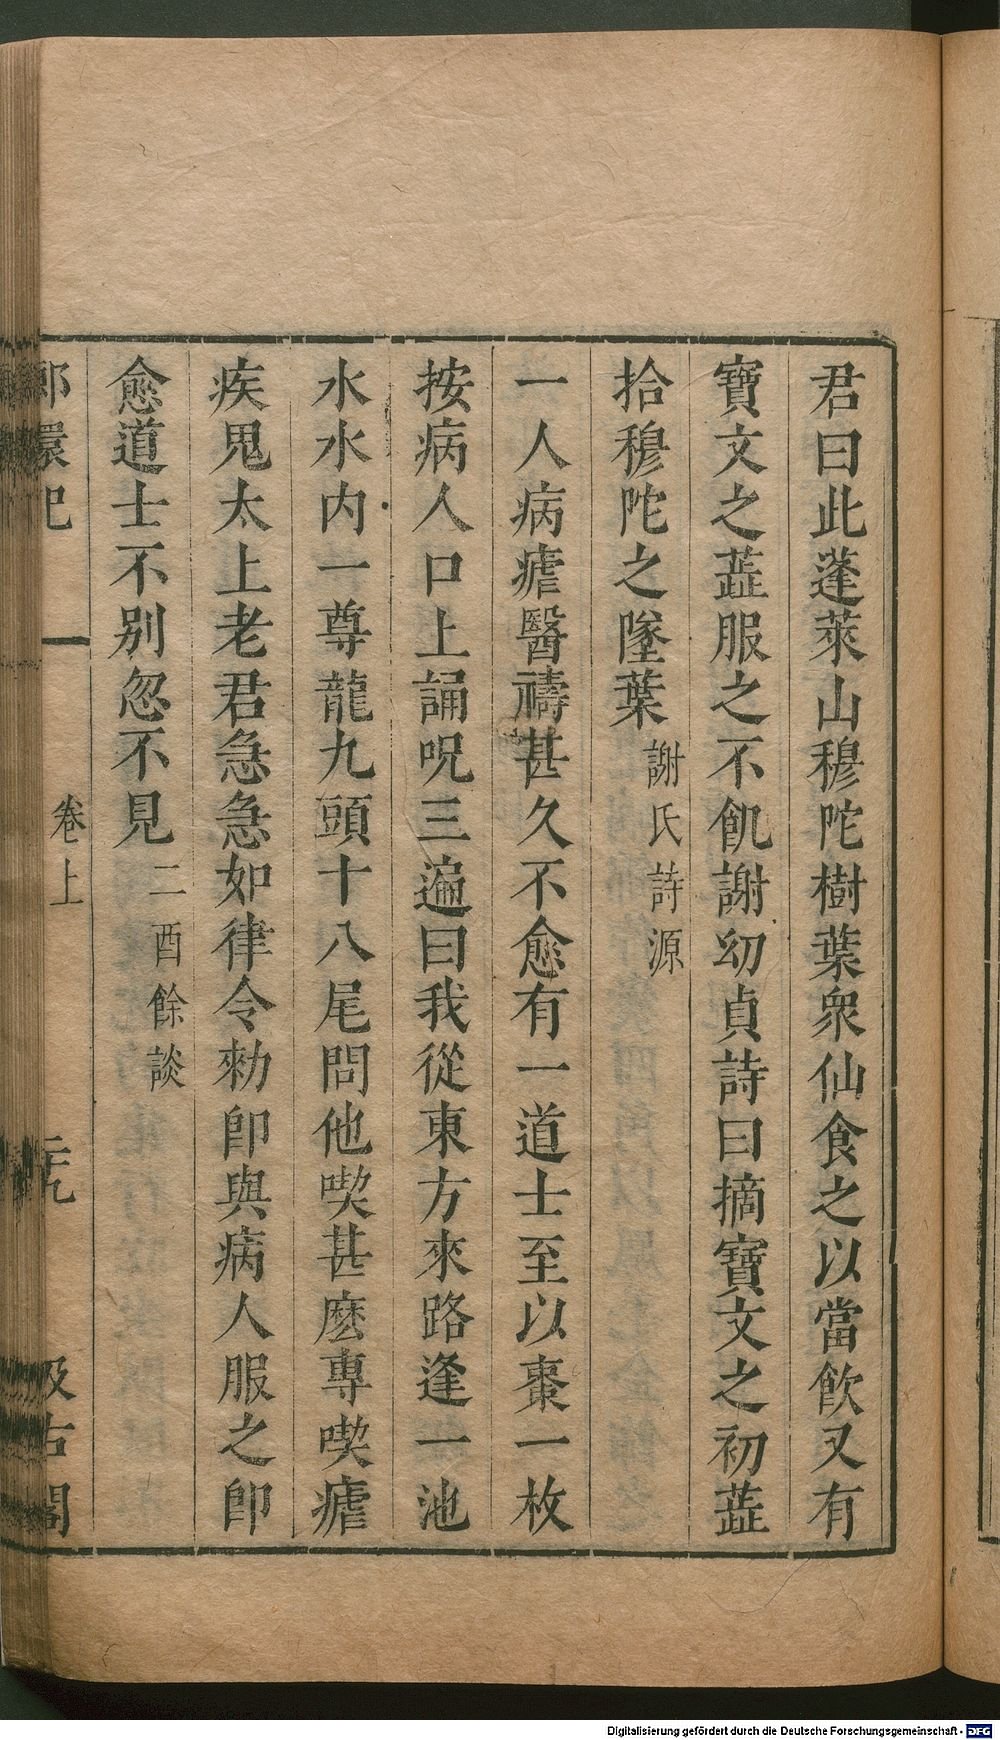 君曰此蓬萊山穆陀樹葉衆仙食之以當飲又有
寶文之蕋服之不飢謝幼貞詩曰摘寶文之初蕋
拾穆陀之墜葉 謝氏詩源
一人病瘧醫禱甚久不愈有一道士至以棗一枚
按病人口上誦呪三遍曰我從東方來路逢一池
水水内一尊龍九頭十八尾問他喫甚麽專喫瘧
疾鬼太上老君急急如律令勑卽與病人服之卽
愈道士不別忽不見 二酉餘談
環記 卷上 汲古閣
Digitalisierung gefördert durch die Deutsche Forschungsgemeinschaft - DFG